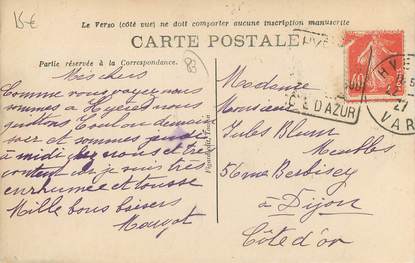 15€
Le Verso (côté vue) ne doit comporter aucune inscription manuscrite
CARTE POSTALE
Partie réservée à la Correspondance.
Mes chers
Comme vous voyez nous
sommes à Hyères nous
quittons Toulon demain
soir et sommes jeudi
à midi chez nous et très
content de je suis très
enrhumée et tousse
Mille bons baisers
Madame
Monsieur
Jules Blum
Meubles
56 rue Berbisey
à Dijon
Côte d'or
40
HYE
VAR
27
CÔTE D'AZUR